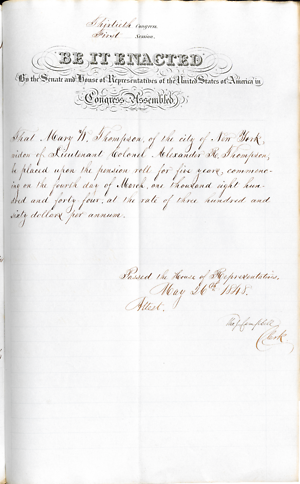 Thirtieth Congress,
First Session.
BE IT ENACTED
By the Senate and House of Representatives of the United States of America in
Congress Assembled,
That Mary W. Thompson, of the city of New York,
widow of Lieutenant Colonel Alexander R. Thompson,
be placed upon the pension roll for five years, commenc-
ing on the fourth day of March, one thousand eight hun-
dred and forty four, at the rate of three hundred and
sixty dollars per annum.
Passed the House of Representatives,
May 26th 1848.
Attest.
Campbell
Clerk